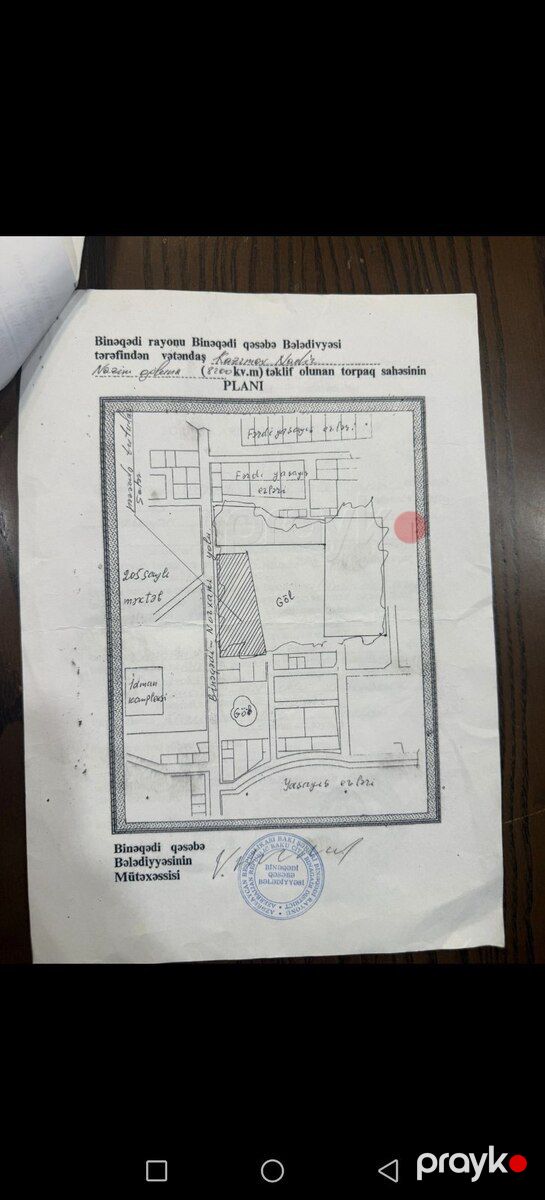 Binəqədi rayonu Binəqədi qəsəbə Bələdiyyəsi
tərəfindən vətəndaş
(8200 kv.m) təklif olunan torpaq sahəsinin
PLANI
Fərdi yaşayış evləri
Fərdi yaşayış
evləri
205 saylı
məktəb
Binəqədi - Novxanı yolu
Göl
İdman
kompleksi
Göl
Yaşayış evləri
Binəqədi qəsəbə
Bələdiyyəsinin
Mütəxəssisi
BİNƏQƏDİ
QƏSƏBƏ
BƏLƏDİYYƏSİ
prayko